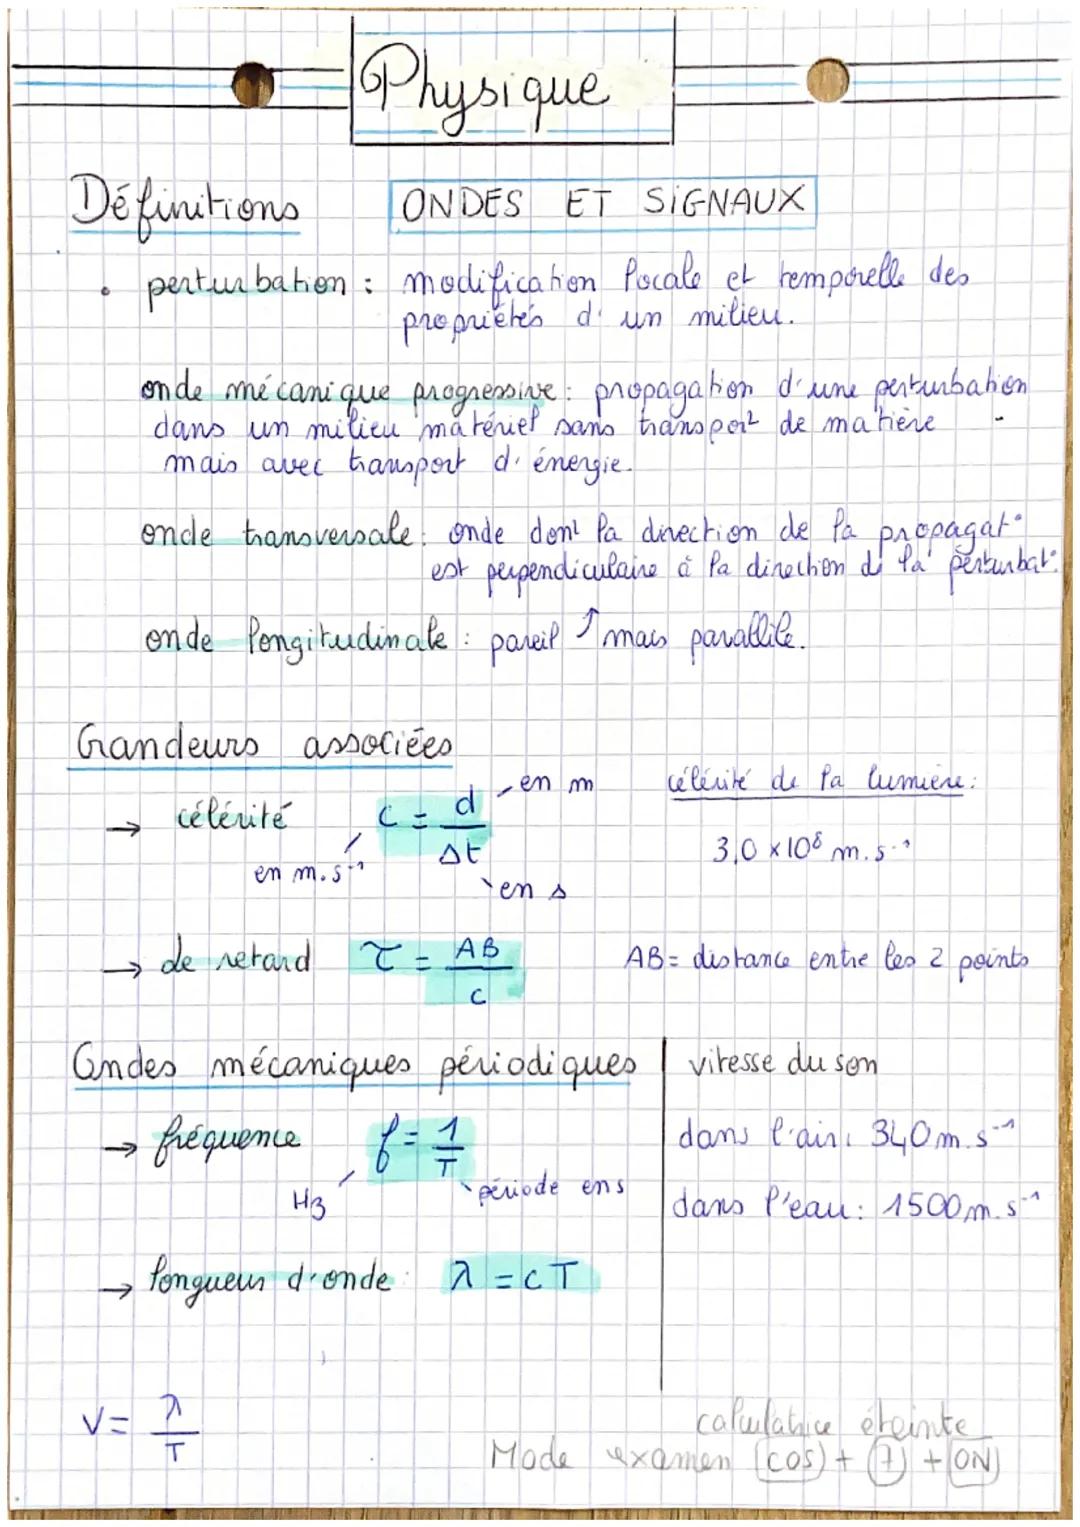 Physique
Définitions ONDES ET SIGNAUX
• perturbation : modification locale et temporelle des
propriétés d'un milieu.
onde mécanique progressive : propagation d'une perturbation
dans un milieu matériel sans transport de matière
mais avec transport d'énergie.
onde transversale : onde dont la direction de la propagat°
est perpendiculaire à la direction de la perturbat°.
onde longitudinale : pareil ↑ mais parallèle.
Grandeurs associées
→ célérité c = d/Δt
en m
en m.s⁻¹
en s
célérité de la lumière :
3,0 × 10⁸ m.s⁻¹
→ de retard τ = AB/c
AB = distance entre les 2 points
Ondes mécaniques périodiques
→ fréquence f = 1/T
Hz
période en s
→ longueur d'onde : λ = cT
vitesse du son
dans l'air : 340 m.s⁻¹
dans l'eau : 1500 m.s⁻¹
V = λ/T
calculatrice éteinte
Mode examen (cos) + (7) + (ON)